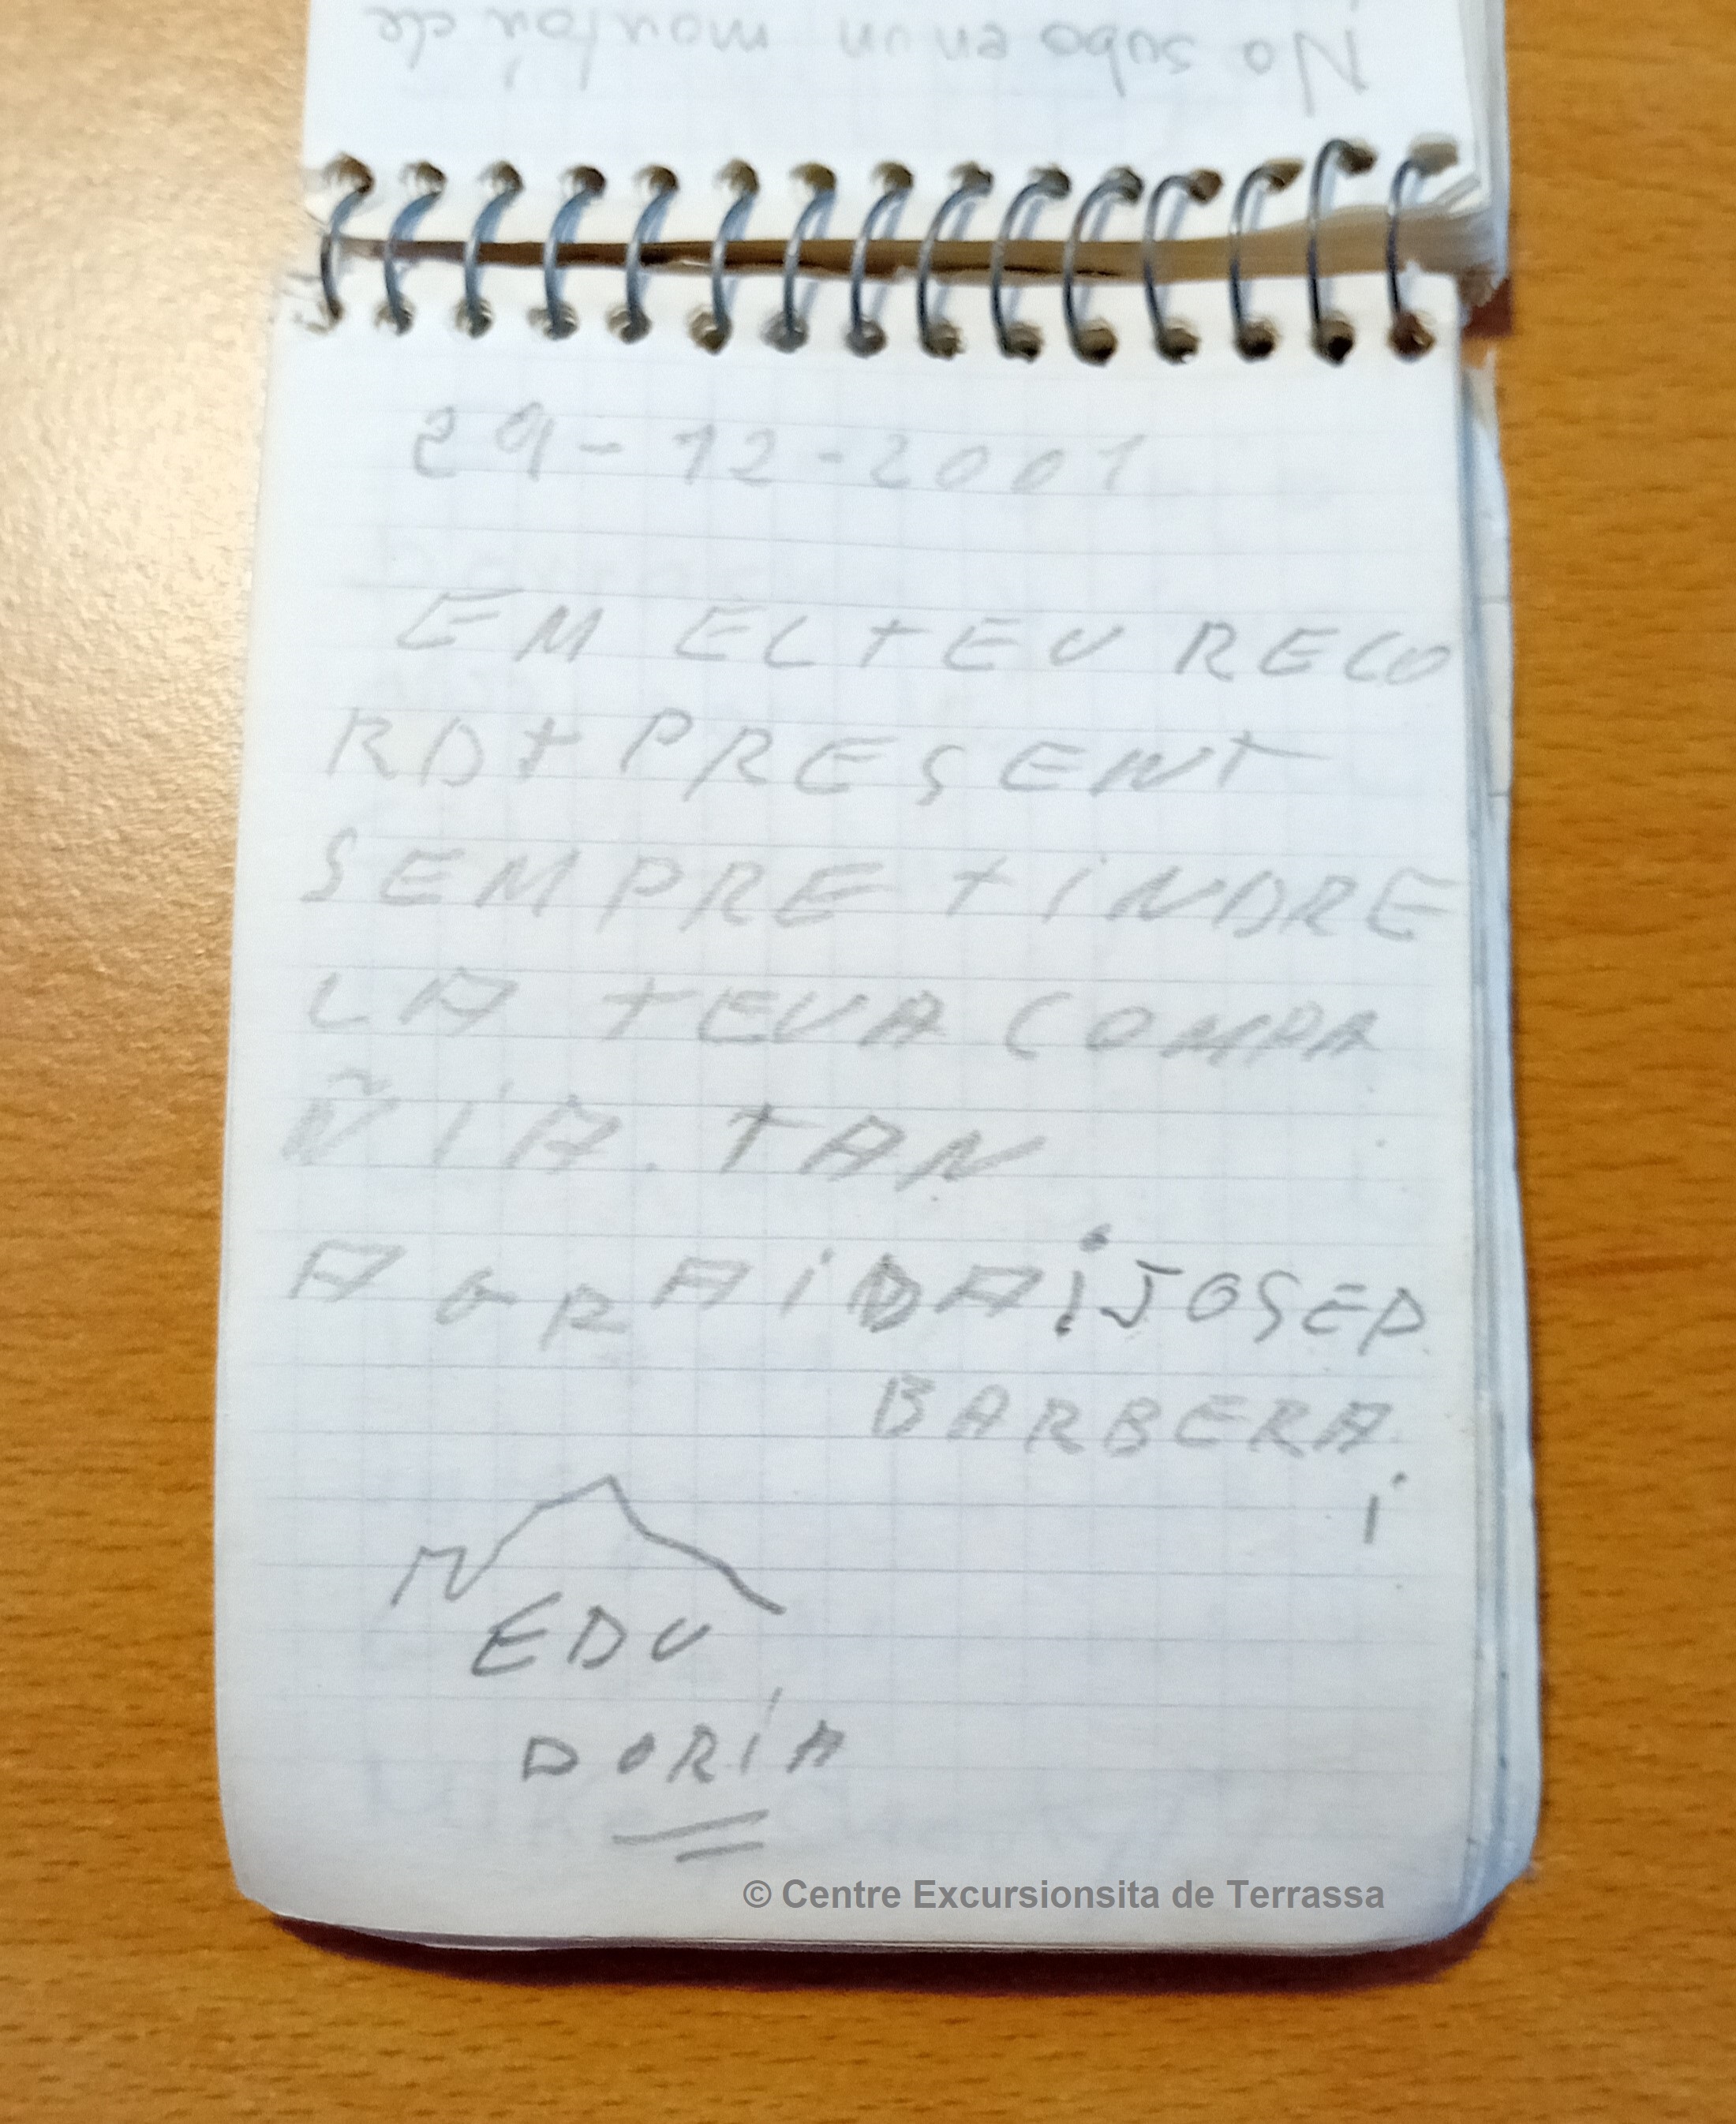 No subo en un montón de
29-12-2001
EM EL TEU RECO
RDT PRESENT
SEMPRE TINDRE
LA TEVA COMPA
ÑIA. TAN
AGRAIDA ¡JOSEP
BARBERA
i
EDU
DORIA
© Centre Excursionsita de Terrassa